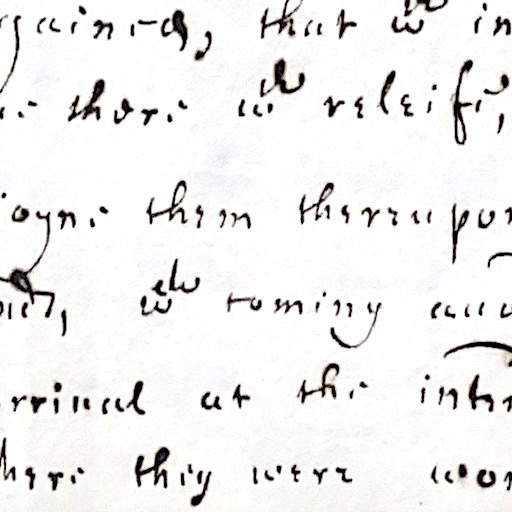 gained, that wch in
there wch releife,
ioyne them thereupon
wch coming
arrival at the
here they were